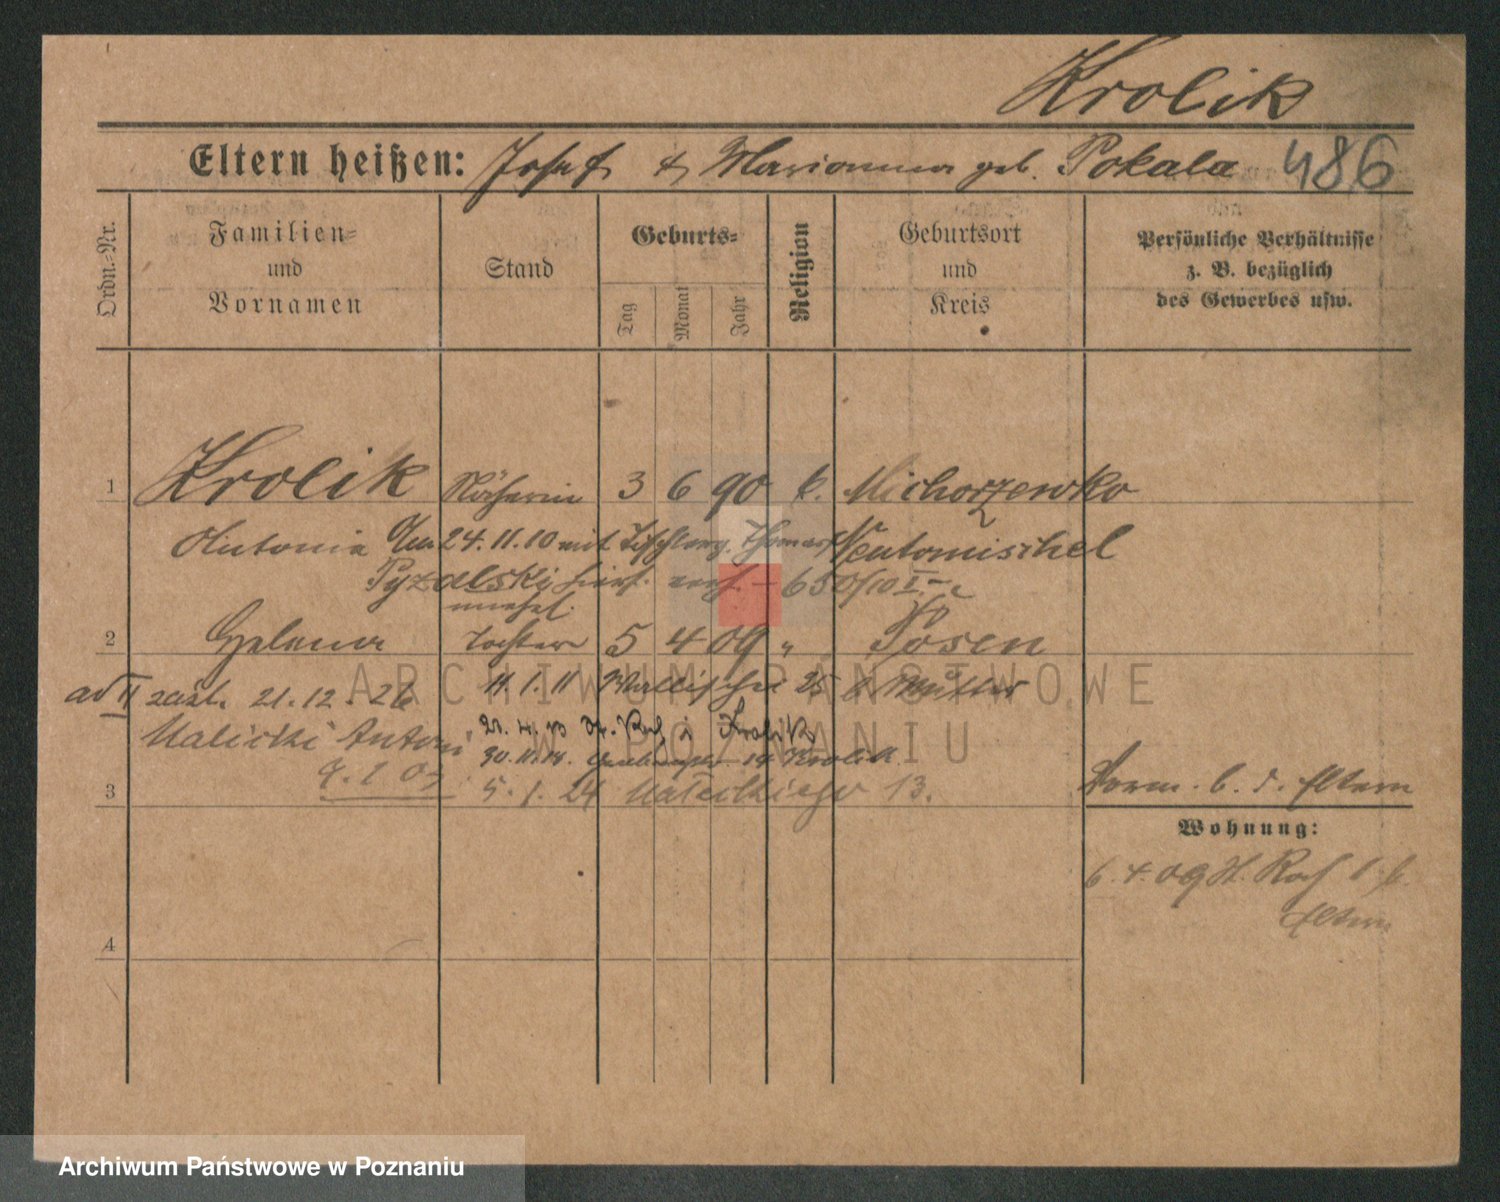 Krolik
Eltern heißen: Josef & Marianna geb. Pokala 486
Ordn.-Nr.
Familien= und Vornamen
Stand
Geburts=
Tag Monat Jahr
Religion
Geburtsort und Kreis
Persönliche Verhältnisse z. B. bezüglich des Gewerbes usw.
1 Krolik Näherin 3 6 90 k. Michorzewko
Antonia Am 24.11.10 mit Tischlerg. Thomas Neutomischel
Pyzalski verh. 650/10 I.
unehel.
2 Helena Tochter 5 4 09 " Posen
ad II 21.12.26 11.1.11 Wallischei 25 b Mutter
Malicki Antoni Krolik
7.1.03 30.11.18. 14 Krolik
3 5.1.24 Małeckiego 13. Vorm. b. d. Eltern
Wohnung:
6.4.09 St. Roch 1 b.
Eltern
4
ARCHIWUM PAŃSTWOWE
W POZNANIU
Archiwum Państwowe w Poznaniu